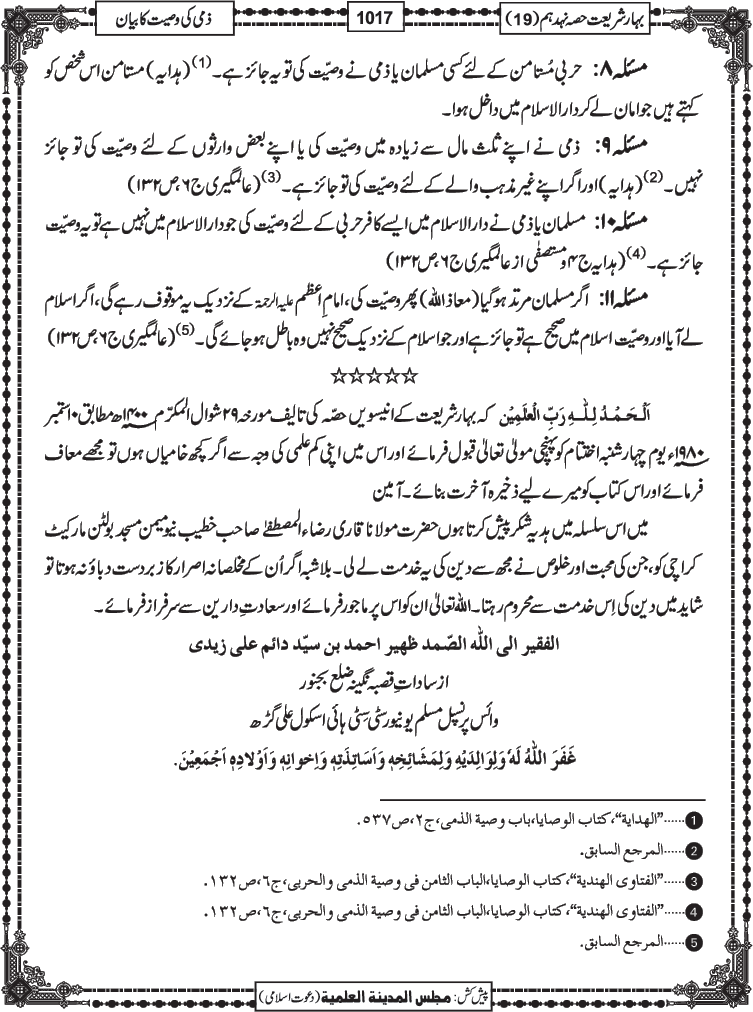 بہار شریعت حصہ نہدہم (19)
1017
ذمی کی وصیت کا بیان
مسئلہ ۸: حربی مُستامن کے لئے کسی مسلمان یا ذمی نے وصیّت کی تو یہ جائز ہے۔(1) (ہدایہ) مستامن اس شخص کو
کہتے ہیں جو امان لے کر دارالاسلام میں داخل ہوا۔
مسئلہ ۹: ذمی نے اپنے ثلث مال سے زیادہ میں وصیّت کی یا اپنے بعض وارثوں کے لئے وصیّت کی تو جائز
نہیں۔(2) (ہدایہ) اور اگر اپنے غیر مذہب والے کے لئے وصیّت کی تو جائز ہے۔(3) (عالمگیری ج۶،ص۱۳۲)
مسئلہ ۱۰: مسلمان یا ذمی نے دارالاسلام میں ایسے کافر حربی کے لئے وصیّت کی جو دارالاسلام میں نہیں ہے تو یہ وصیّت
جائز ہے۔(4) (ہدایہ ج۴ و مستصفٰی از عالمگیری ج۶،ص۱۳۲)
مسئلہ ۱۱: اگر مسلمان مرتد ہوگیا (معاذ اللہ) پھر وصیّت کی، امامِ اعظم علیہ الرحمۃ کے نزدیک یہ موقوف رہے گی، اگر اسلام
لے آیا اور وصیّت اسلام میں صحیح ہے تو جائز ہے اور جو اسلام کے نزدیک صحیح نہیں وہ باطل ہوجائے گی۔(5) (عالمگیری ج۶،ص۱۳۲)
☆☆☆☆☆
اَلْحَمْدُ لِلّٰہِ رَبِّ الْعٰلَمِیْن کہ بہار شریعت کے انیسویں حصّہ کی تالیف مورخہ ۲۹ شوال المکرّم ۱۴۰۰ھ مطابق ۱۰ ستمبر
۱۹۸۰ء یوم چہار شنبہ اختتام کو پہنچی مولیٰ تعالیٰ قبول فرمائے اور اس میں اپنی کم علمی کی وجہ سے اگر کچھ خامیاں ہوں تو مجھے معاف
فرمائے اور اس کتاب کو میرے لیے ذخیرہ آخرت بنائے۔ آمین
میں اس سلسلہ میں ہدیہ شکر پیش کرتا ہوں حضرت مولانا قاری رضاء المصطفےٰ صاحب خطیب نیو میمن مسجد بولٹن مارکیٹ
کراچی کو، جن کی محبت اور خلوص نے مجھ سے دین کی یہ خدمت لے لی۔ بلاشبہ اگر اُن کے مخلصانہ اصرار کا زبردست دباؤ نہ ہوتا تو
شاید میں دین کی اِس خدمت سے محروم رہتا۔ اللہ تعالیٰ ان کو اس پر ماجور فرمائے اور سعادتِ دارین سے سرفراز فرمائے۔
الفقیر الی اللّٰہ الصّمد ظہیر احمد بن سیّد دائم علی زیدی
از ساداتِ قصبہ نگینہ ضلع بجنور
وائس پرنسپل مسلم یونیورسٹی سِٹی ہائی اسکول علی گڑھ
غَفَرَ اللّٰہُ لَہٗ وَلِوَالِدَیْہِ وَلِمَشَائِخِہٖ وَاَسَاتِذَتِہٖ وَاِخوانِہٖ وَاَوْلَادِہٖ اَجْمَعِیْنَ.
1 ......"الھدایۃ"، کتاب الوصایا، باب وصیۃ الذمی، ج۲، ص۵۳۷.
2 ......المرجع السابق.
3 ......"الفتاوی الھندیۃ"، کتاب الوصایا، الباب الثامن فی وصیۃ الذمی والحربی، ج۶، ص۱۳۲.
4 ......"الفتاوی الھندیۃ"، کتاب الوصایا، الباب الثامن فی وصیۃ الذمی والحربی، ج۶، ص۱۳۲.
5 ......المرجع السابق.
پیش کش: مجلس المدینۃ العلمیۃ (دعوت اسلامی)